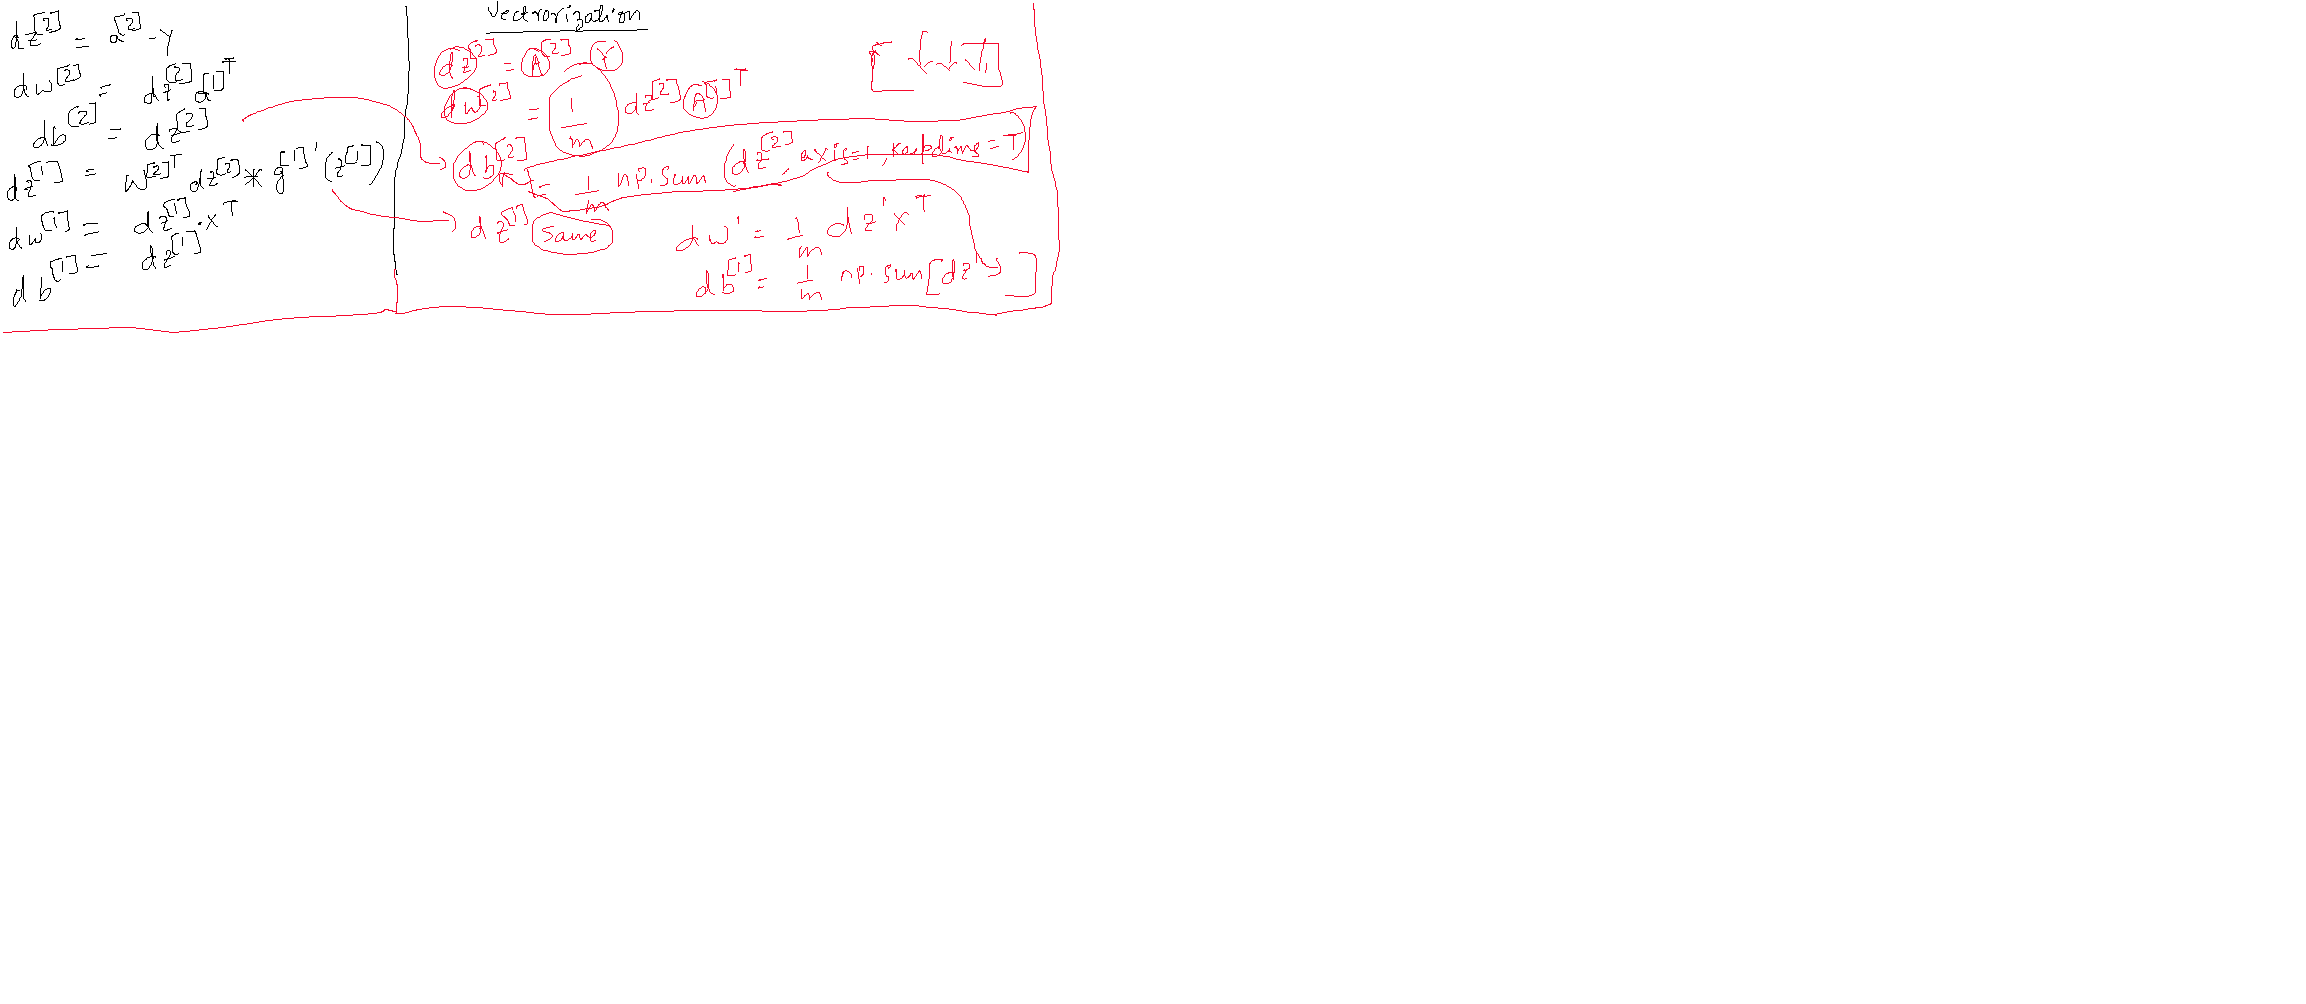 dz[2] = a[2] - y
dw[2] = dz[2] a[1]T
db[2] = dz[2]
dz[1] = w[2]T dz[2] * g[1]' (z[1])
dw[1] = dz[1] . x T
db[1] = dz[1]
Vectrorization
dz[2] = A[2] - Y
dw[2] = 1/m dz[2] A[1]T
db[2] = 1/m np.sum (dz[2], axis=1, keepdims = T)
dz[1] same
dw' = 1/m dz' x T
db[1] = 1/m np.sum [dz' ]